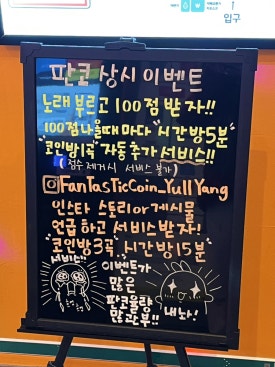 입구
판코 상시 이벤트
노래 부르고 100점 받자!!
100점 나올때마다 "시간방 5분"
"코인방 1곡" 자동 추가 서비스!!
(점수 제거시 서비스 불가)
FanTasTicCoin_YullYang
인스타 스토리 or 게시물
언급하고 서비스 받자!
"코인방 3곡" "시간방 15분"
서비스!!
이벤트가
많은
판코율량
많관부!!
내놔!